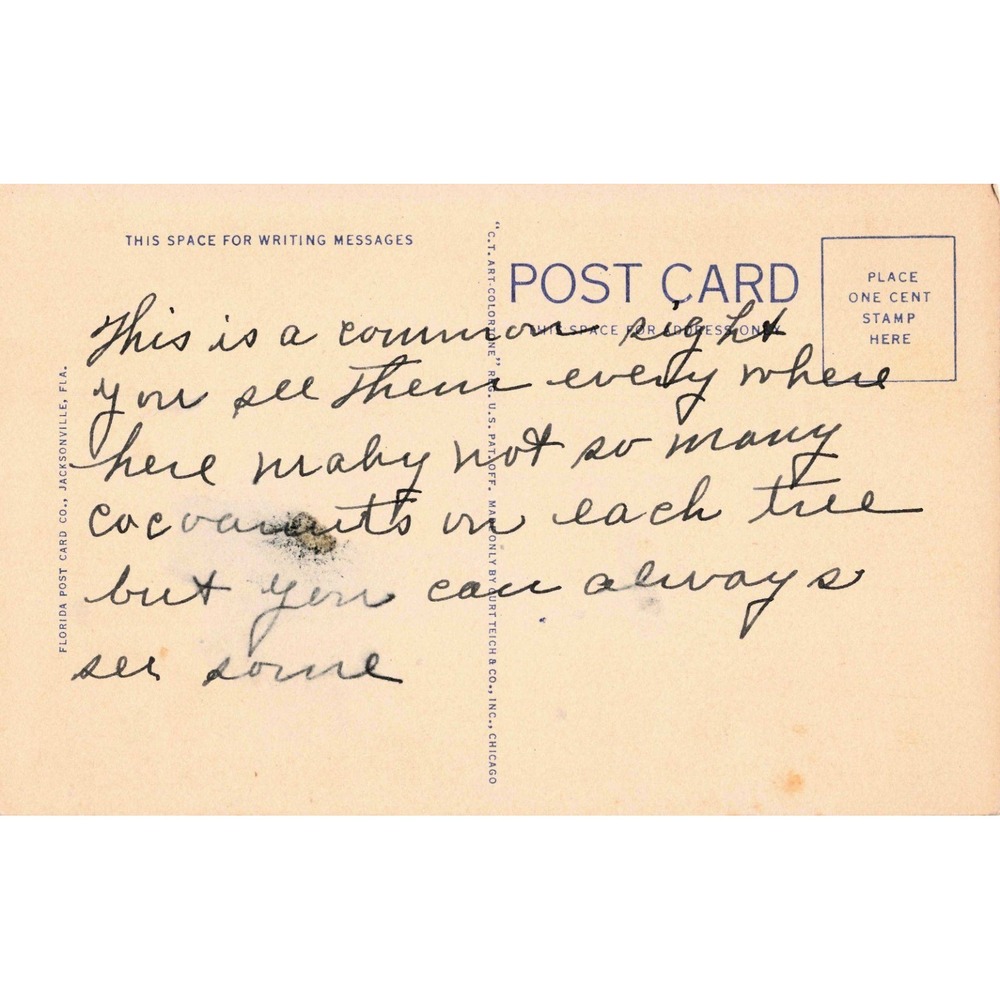 THIS SPACE FOR WRITING MESSAGES
"C.T. ART-COLORTONE" REG. U.S. PAT. OFF. MADE ONLY BY CURT TEICH & CO., INC., CHICAGO
POST CARD
THIS SPACE FOR ADDRESS ONLY
PLACE
ONE CENT
STAMP
HERE
FLORIDA POST CARD CO., JACKSONVILLE, FLA.
This is a common sight
you see them every where
here maby not so many
cocoanuts on each tree
but you can always
see some